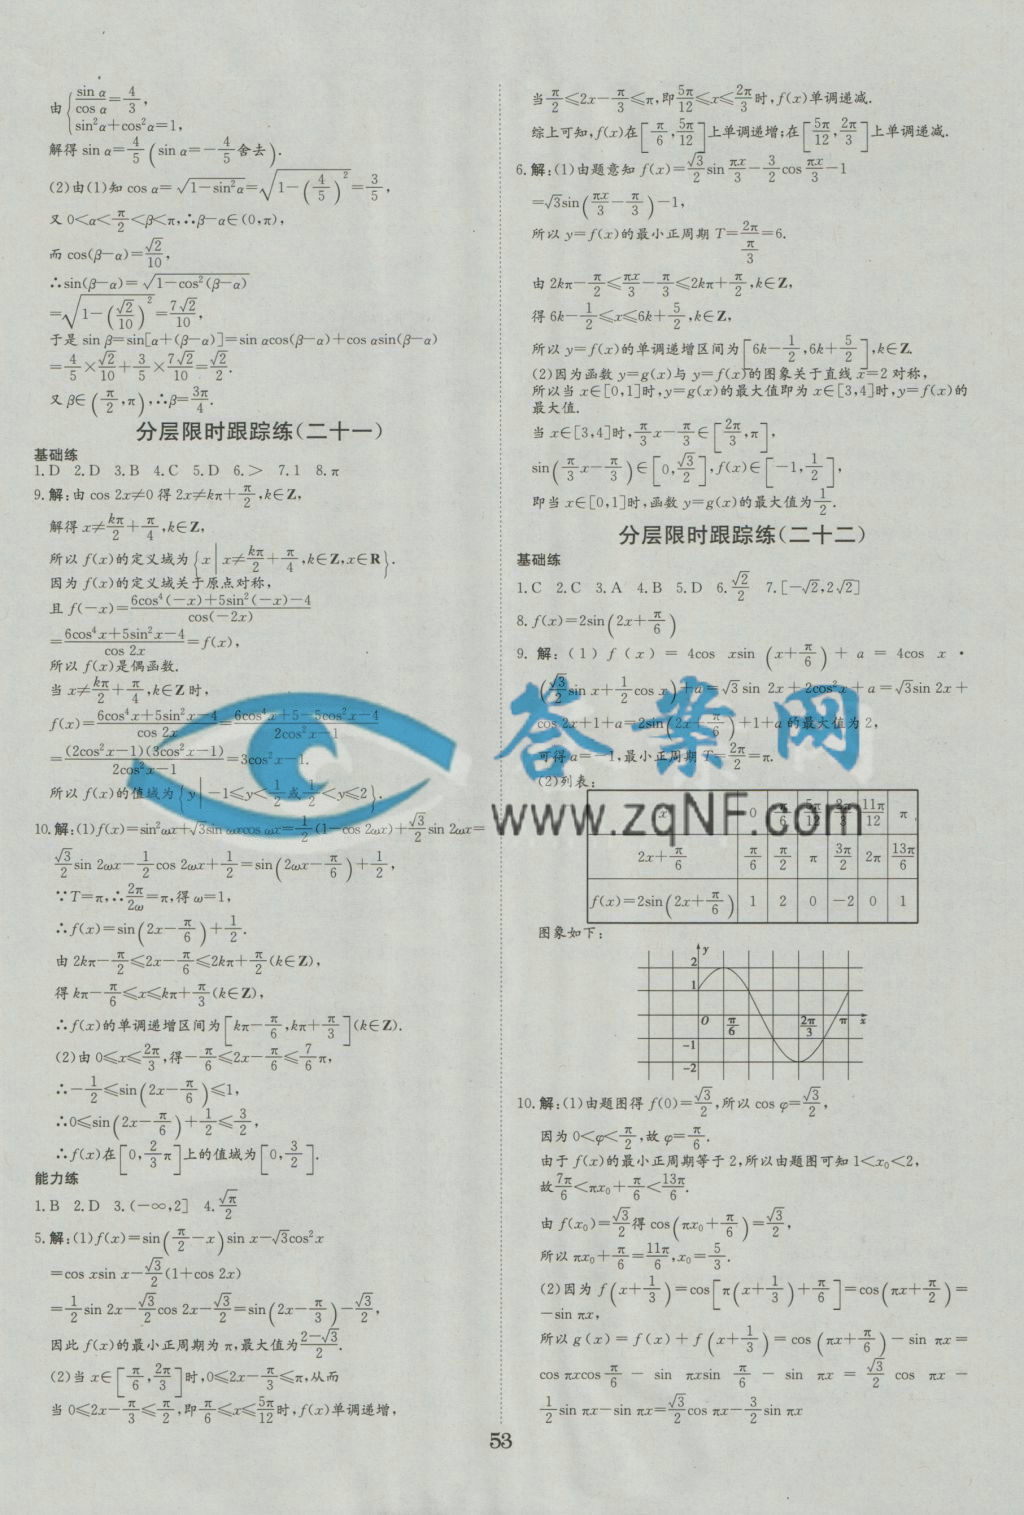 由{sin α/cos α=4/3,
sin²α+cos²α=1,
解得 sin α=4/5(sin α=-4/5舍去).
(2)由(1)知 cos α=√(1-sin²α)=√(1-(4/5)²)=3/5,
又 0<α<π/2<β<π,∴β-α∈(0,π),
而 cos(β-α)=√2/10,
∴sin(β-α)=√(1-cos²(β-α))
=√(1-(√2/10)²)=7√2/10,
于是 sin β=sin[α+(β-α)]=sin αcos(β-α)+cos αsin(β-α)
=4/5×√2/10+3/5×7√2/10=√2/2.
又 β∈(π/2,π),∴β=3π/4.
分层限时跟踪练(二十一)
基础练
1.D 2.D 3.B 4.C 5.D 6.> 7.1 8.π
9.解:由 cos 2x≠0 得 2x≠kπ+π/2,k∈Z,
解得 x≠kπ/2+π/4,k∈Z,
所以 f(x)的定义域为{x|x≠kπ/2+π/4,k∈Z,x∈R}.
因为 f(x)的定义域关于原点对称,
且 f(-x)=(6cos⁴(-x)+5sin²(-x)-4)/cos(-2x)
=(6cos⁴x+5sin²x-4)/cos 2x=f(x),
所以 f(x)是偶函数.
当 x≠kπ/2+π/4,k∈Z 时,
f(x)=(6cos⁴x+5sin²x-4)/cos 2x=(6cos⁴x+5-5cos²x-4)/(2cos²x-1)
=(2cos²x-1)(3cos²x-1)/(2cos²x-1)=3cos²x-1.
所以 f(x)的值域为{y|-1≤y<1/2或1/2<y≤2}.
10.解:(1)f(x)=sin²ωx+√3sin ωxcos ωx=1/2(1-cos 2ωx)+√3/2sin 2ωx=
√3/2sin 2ωx-1/2cos 2ωx+1/2=sin(2ωx-π/6)+1/2,
∵T=π,∴2π/2ω=π,得 ω=1,
∴f(x)=sin(2x-π/6)+1/2.
由 2kπ-π/2≤2x-π/6≤2kπ+π/2(k∈Z),
得 kπ-π/6≤x≤kπ+π/3(k∈Z),
∴f(x)的单调递增区间为[kπ-π/6,kπ+π/3](k∈Z).
(2)由 0≤x≤2π/3,得-π/6≤2x-π/6≤7/6π,
∴-1/2≤sin(2x-π/6)≤1,
∴0≤sin(2x-π/6)+1/2≤3/2,
∴f(x)在[0,2/3π]上的值域为[0,3/2].
能力练
1.B 2.D 3.(-∞,2] 4.√π/2
5.解:(1)f(x)=sin(π/2-x)sin x-√3cos²x
=cos xsin x-√3/2(1+cos 2x)
=1/2sin 2x-√3/2cos 2x-√3/2=sin(2x-π/3)-√3/2,
因此 f(x)的最小正周期为 π,最大值为(2-√3)/2.
(2)当 x∈[π/6,2π/3]时,0≤2x-π/3≤π,从而
当 0≤2x-π/3≤π/2,即π/6≤x≤5π/12时,f(x)单调递增,
当π/2≤2x-π/3≤π,即5π/12≤x≤2π/3时,f(x)单调递减.
综上可知,f(x)在[π/6,5π/12]上单调递增;在[5π/12,2π/3]上单调递减.
6.解:(1)由题意知 f(x)=√3/2sinπx/3-3/2cosπx/3-1
=√3sin(πx/3-π/3)-1,
所以 y=f(x)的最小正周期 T=2π/(π/3)=6.
由 2kπ-π/2≤πx/3-π/3≤2kπ+π/2,k∈Z,
得 6k-1/2≤x≤6k+5/2,k∈Z,
所以 y=f(x)的单调递增区间为[6k-1/2,6k+5/2],k∈Z.
(2)因为函数 y=g(x)与 y=f(x)的图象关于直线 x=2 对称,
所以当 x∈[0,1]时,y=g(x)的最大值即为 x∈[3,4]时,y=f(x)的
最大值.
当 x∈[3,4]时,π/3x-π/3∈[2π/3,π],
sin(π/3x-π/3)∈[0,√3/2],f(x)∈[-1,1/2],
即当 x∈[0,1]时,函数 y=g(x)的最大值为1/2.
分层限时跟踪练(二十二)
基础练
1.C 2.C 3.A 4.B 5.D 6.√2/2 7.[-√2,2√2]
8.f(x)=2sin(2x+π/6)
9.解:(1)f(x)=4cos xsin(x+π/6)+a=4cos x·
(√3/2sin x+1/2cos x)+a=√3sin 2x+2cos²x+a=√3sin 2x+
cos 2x+1+a=2sin(2x+π/6)+1+a 的最大值为 2,
可得 a=-1,最小正周期 T=2π/2=π.
(2)列表:
x 0 π/6 5π/12 2π/3 11π/12 π
2x+π/6 π/6 π/2 π 3π/2 2π 13π/6
f(x)=2sin(2x+π/6) 1 2 0 -2 0 1
图象如下:
y
2
1
O π/6 2π/3 π x
-1
-2
10.解:(1)由题图得 f(0)=√3/2,所以 cos φ=√3/2,
因为 0<φ<π/2,故 φ=π/6.
由于 f(x)的最小正周期等于 2,所以由题图可知 1<x₀<2,
故7π/6<πx₀+π/6<13π/6.
由 f(x₀)=√3/2得 cos(πx₀+π/6)=√3/2,
所以 πx₀+π/6=11π/6,x₀=5/3.
(2)因为 f(x+1/3)=cos[π(x+1/3)+π/6]=cos(πx+π/2)=
-sin πx,
所以 g(x)=f(x)+f(x+1/3)=cos(πx+π/6)-sin πx=
cos πxcosπ/6-sin πxsinπ/6-sin πx=√3/2cos πx-
1/2sin πx-sin πx=√3/2cos πx-3/2sin πx
53
答案网
www.zqNF.com